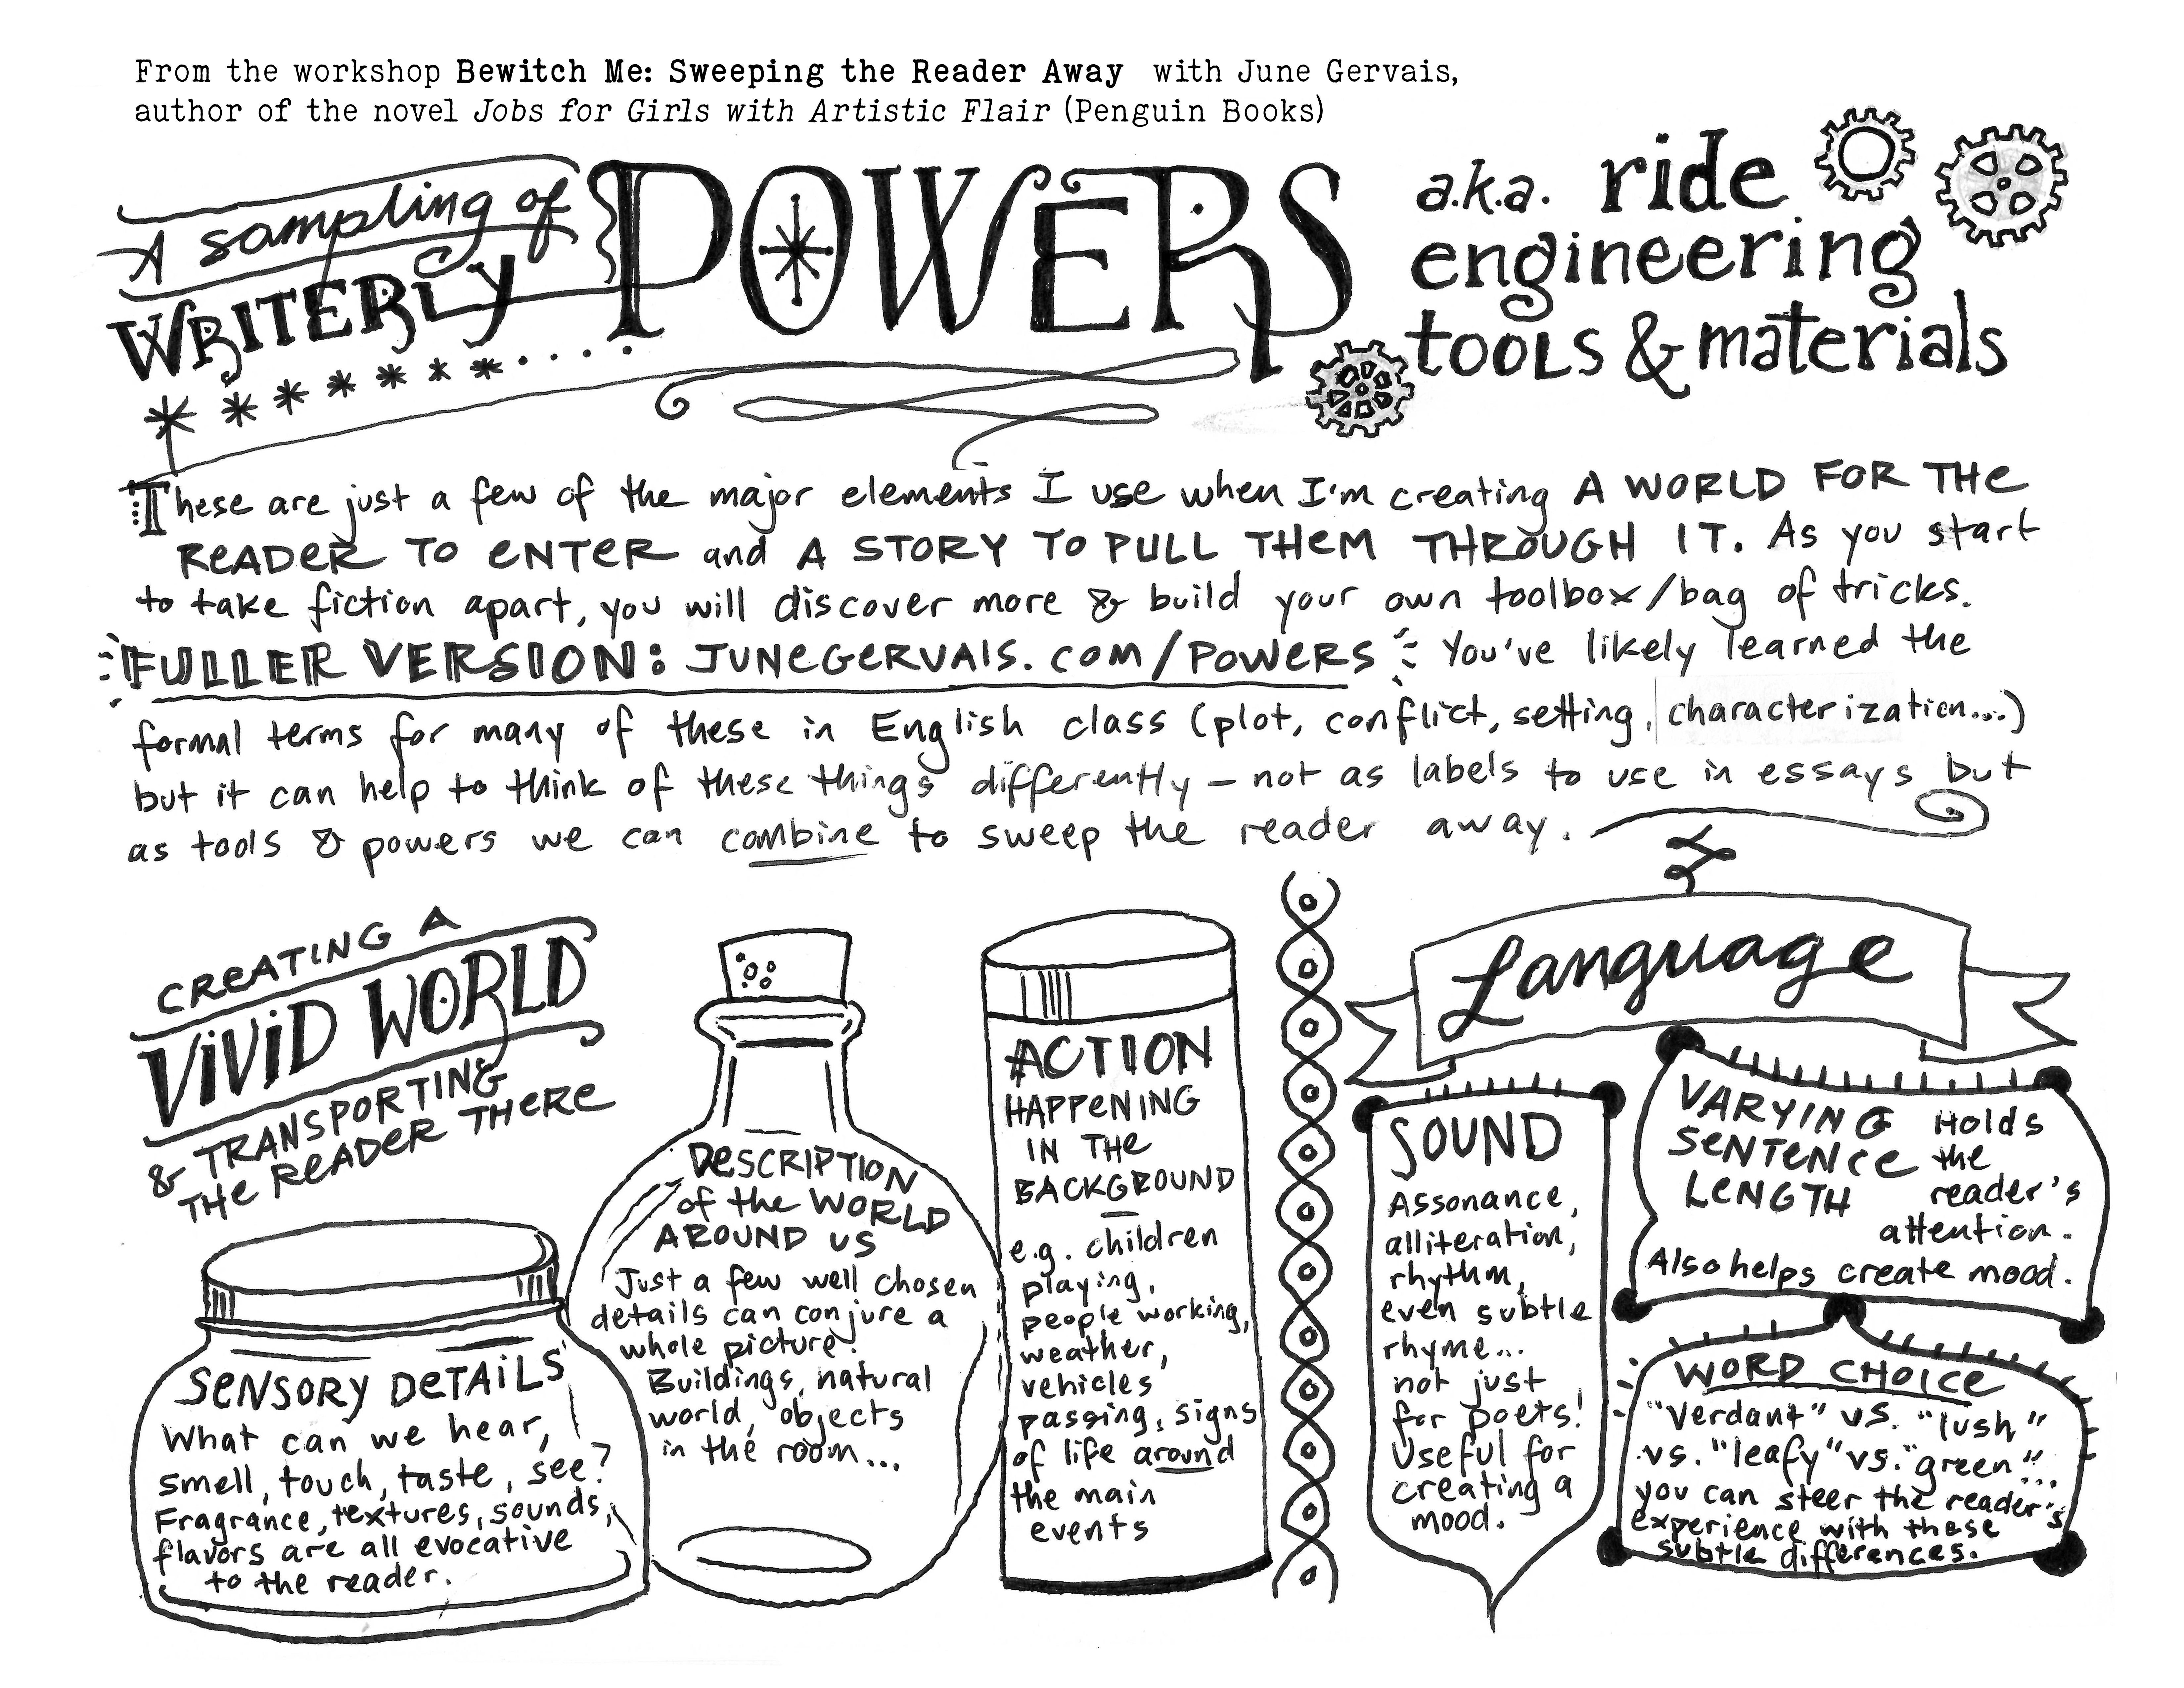 From the workshop Bewitch Me: Sweeping the Reader Away with June Gervais,
author of the novel Jobs for Girls with Artistic Flair (Penguin Books)
A sampling of
WRITERLY
POWERS
a.k.a. ride
engineering
tools & materials
These are just a few of the major elements I use when I'm creating A WORLD FOR THE
READER TO ENTER and A STORY TO PULL THEM THROUGH IT. As you start
to take fiction apart, you will discover more & build your own toolbox/bag of tricks.
FULLER VERSION: JUNEGERVAIS.COM/POWERS You've likely learned the
formal terms for many of these in English class (plot, conflict, setting, characterization...)
but it can help to think of these things differently – not as labels to use in essays but
as tools & powers we can combine to sweep the reader away.
CREATING A
VIVID WORLD
& TRANSPORTING
THE READER THERE
SENSORY DETAILS
What can we hear,
smell, touch, taste, see?
Fragrance, textures, sounds,
flavors are all evocative
to the reader.
DESCRIPTION
of the WORLD
AROUND US
Just a few well chosen
details can conjure a
whole picture!
Buildings, natural
world, objects
in the room...
ACTION
HAPPENING
IN THE
BACKGROUND
e.g. children
playing,
people working,
weather,
vehicles
passing, signs
of life around
the main
events
Language
SOUND
Assonance,
alliteration,
rhythm,
even subtle
rhyme...
not just
for poets!
Useful for
creating a
mood.
VARYING
SENTENCE
LENGTH
Holds
the
reader's
attention.
Also helps create mood.
WORD CHOICE
"Verdant" vs. "lush"
vs. "leafy" vs. "green"...
you can steer the reader's
experience with these
subtle differences.